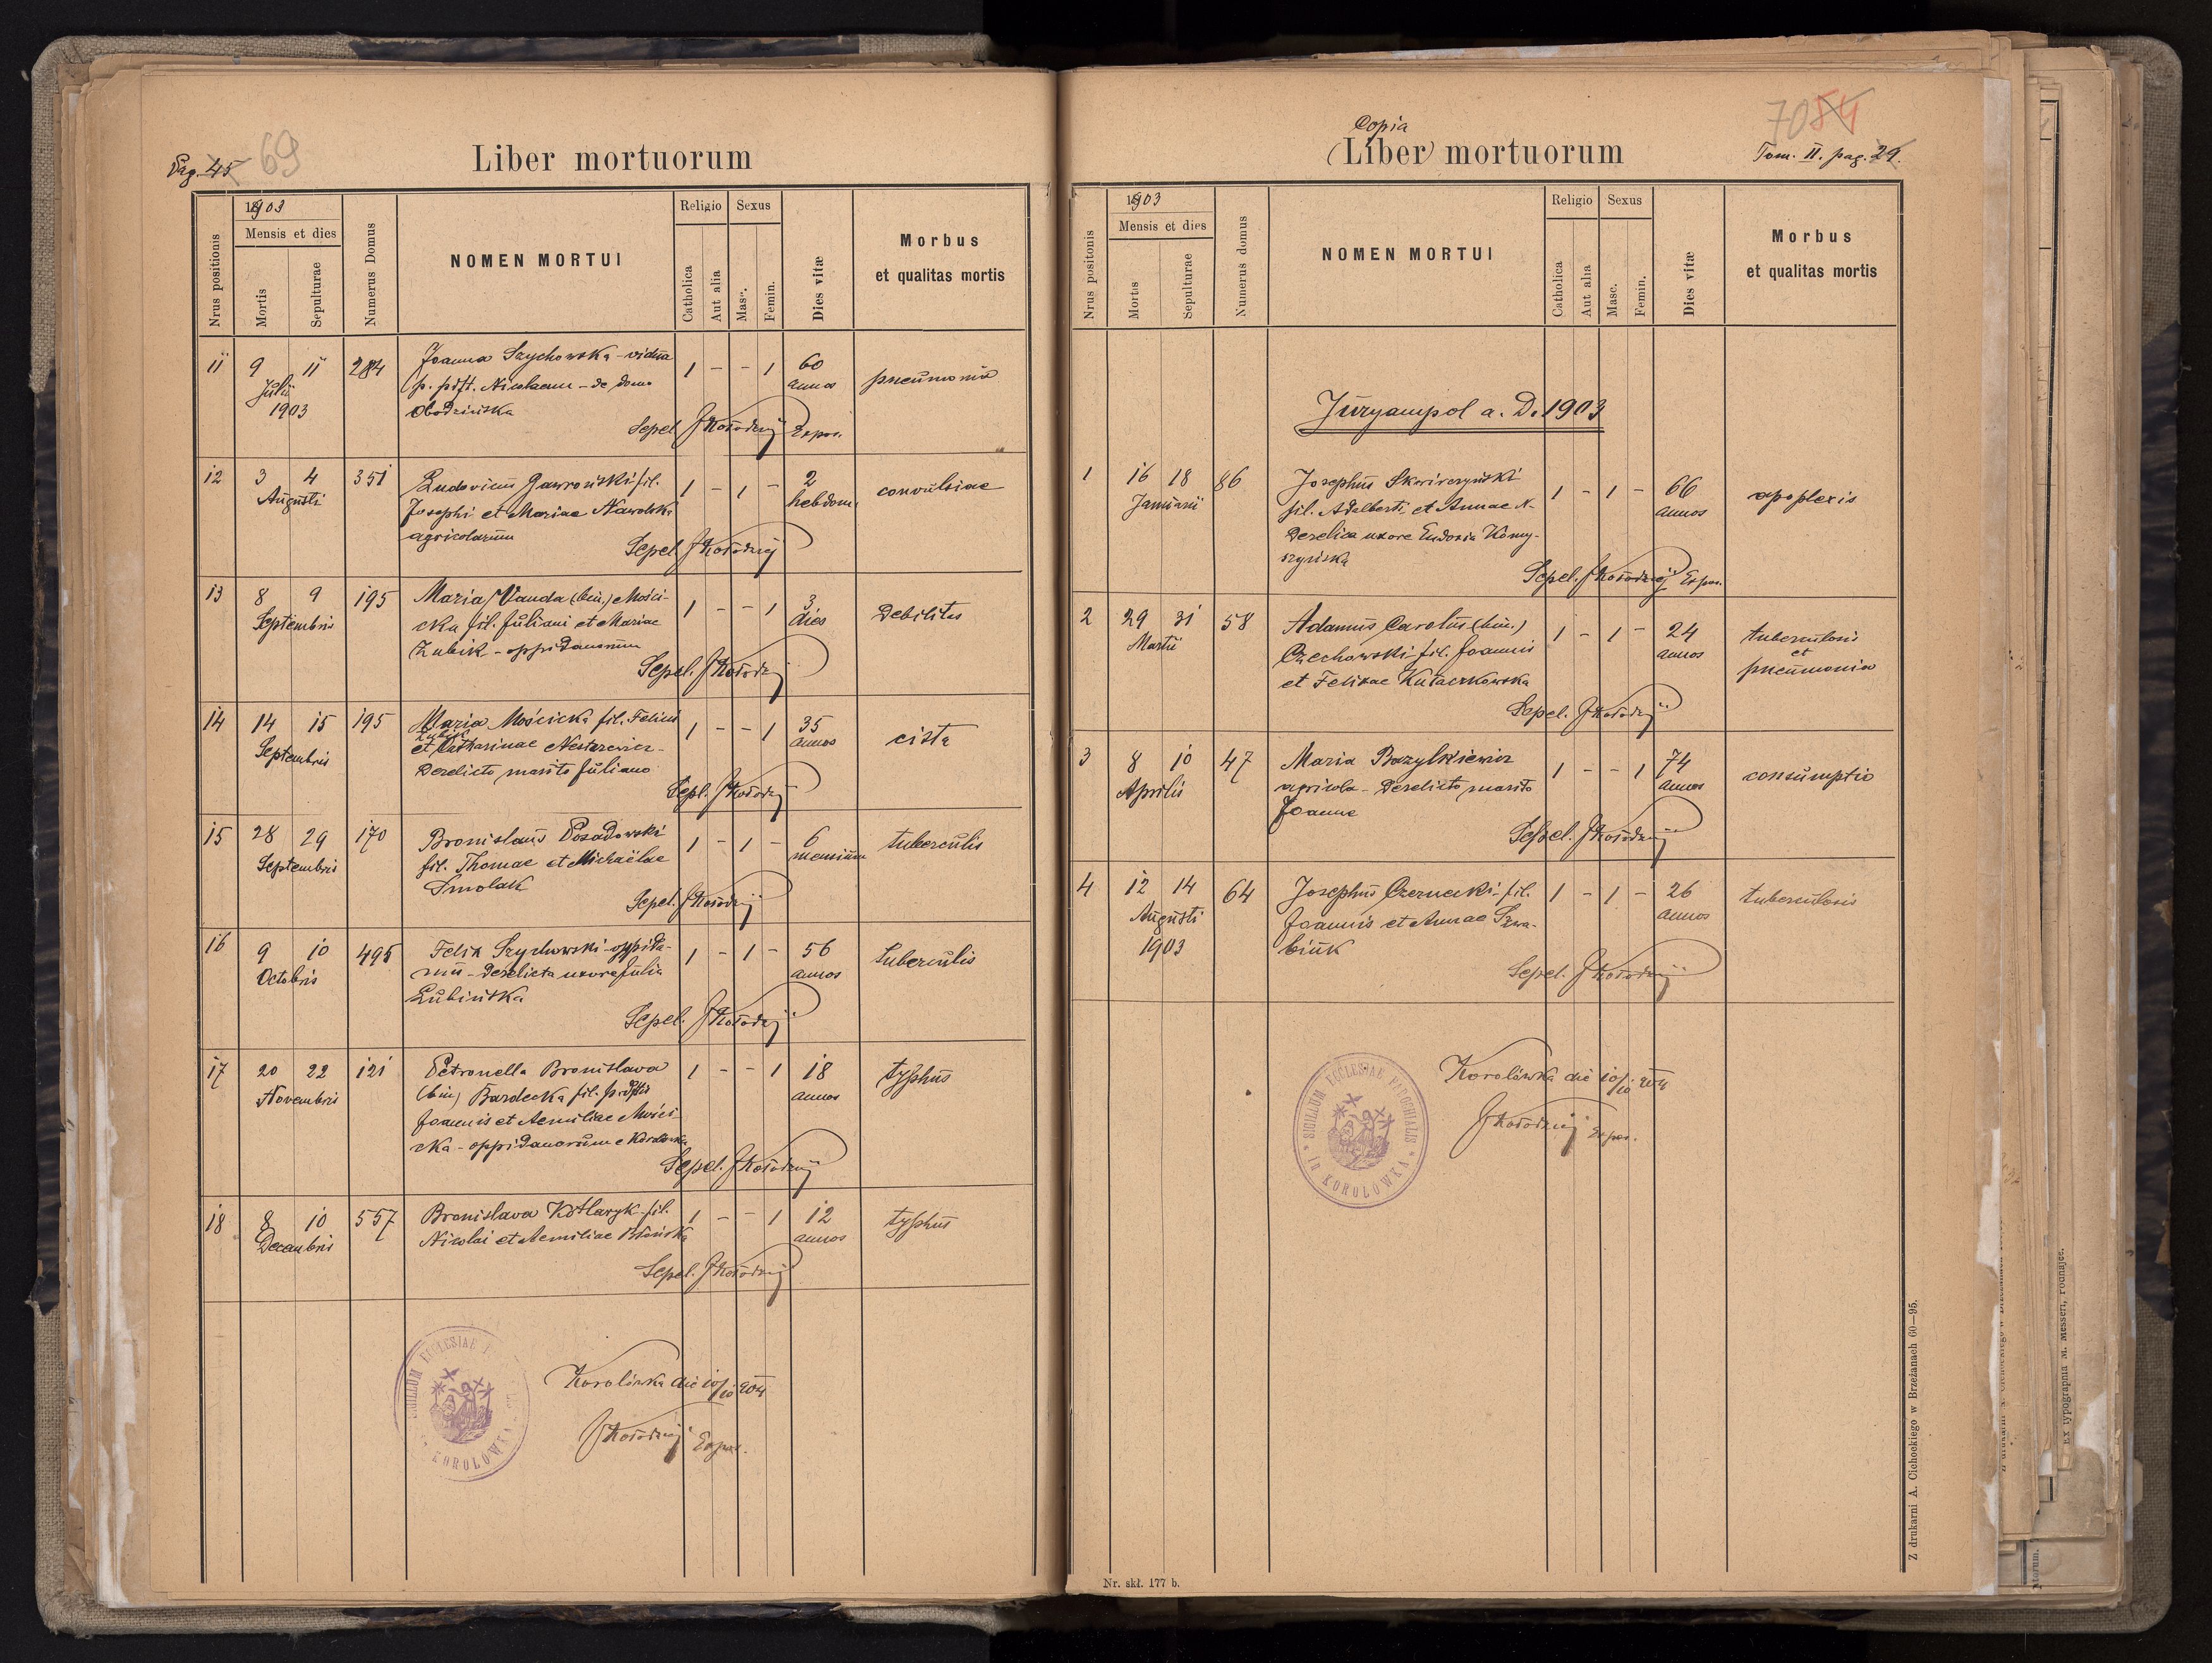 Pag. 45 69
Liber mortuorum
Nrus positionis
1903
Mensis et dies
Mortis
Sepulturae
Numerus Domus
NOMEN MORTUI
Religio
Catholica
Aut alia
Sexus
Masc.
Femin.
Dies vitæ
Morbus
et qualitas mortis
11 9 11 284 Joanna Szychowska - vidua 1 - - 1 60 pneumonia
Julii p. post. Nicolaum - de domo annos
1903 Obodzińska
Sepel. JKołodziej Expos.
12 3 4 351 Ludovicus Gawroński fil. 1 - 1 - 2 convulsiae
Augusti Josephi et Mariae Nawolska hebdom.
agricolarum
Sepel. JKołodziej
13 8 9 195 Maria Vanda (bin.) Mości- 1 - - 1 3 Debilitas
Septembris cka fil. Juliani et Mariae dies
Zubik - oppidanorum
Sepel. JKołodziej
14 14 15 195 Maria Mościcka fil. Felicis 1 - - 1 35 cista
Zubik
Septembris et Catharinae Nestarewicz - annos
derelicto marito Juliano
Sepl. JKołodziej
15 28 29 170 Bronislaus Posadowski 1 - 1 - 6 tuberculis
Septembris fil. Thomae et Michaëlae mensium
Smolak
Sepel. JKołodziej
16 9 10 495 Felix Szychowski - oppida- 1 - 1 - 56 tuberculis
Octobris nus - derelicta uxore Julia annos
Lubińska
Sepel. JKołodziej
17 20 22 121 Petronella Bronislava 1 - - 1 18 typhus
Novembris (bin) Bardecka fil. annos
Joannis et Aemiliae Mości-
cka - oppidanorum e Korolowka
Sepel. JKołodziej
18 8 10 557 Bronislava Kotlaryk fil. 1 - - 1 12 typhus
Decembris Nicolai et Aemiliae Błońska annos
Sepel. JKołodziej
SIGILLUM ECCLESIAE P
KOROLÓWKA
Korolówka die 10/10 904
JKołodziej Expos.
Copia
(Liber) mortuorum
70 54
Tom. II. pag. 29.
Nrus positonis
1903
Mensis et dies
Mortis
Sepulturae
Numerus domus
NOMEN MORTUI
Religio
Catholica
Aut alia
Sexus
Masc.
Femin.
Dies vitæ
Morbus
et qualitas mortis
Juryampol a. D. 1903
1 16 18 86 Josephus Skwirczyński 1 - 1 - 66 apoplexia
Januarii fil. Adalberti et Annae N. annos
Derelicta uxore Eudoxia Komy-
szyńska
Sepel. JKołodziej Expos.
2 29 31 58 Adamus Carolus (bin.) 1 - 1 - 24 tuberculosis
Martii Czechowski fil. Joannis annos et
et Felixae Kułaczkowska pneumonia
Sepel. JKołodziej
3 8 10 47 Maria Bazylkiewicz 1 - - 1 74 consumptio
Aprilis agricola - derelicto marito annos
Joanne
Sepel. JKołodziej
4 12 14 64 Josephus Czernecki - fil. 1 - 1 - 26 tuberculosis
Augusti Joannis et Annae Szwa- annos
1903 biuk
Sepel. JKołodziej
SIGILLUM ECCLESIAE PAROCHIALIS
in KOROLÓWKA
Korolówka die 10/10 904
JKołodziej Expos.
Nr. skł. 177 b.
Z drukarni A. Cichockiego w Brzeżanach 60—95.
Ex typographia M. Messeri, Podhajce.